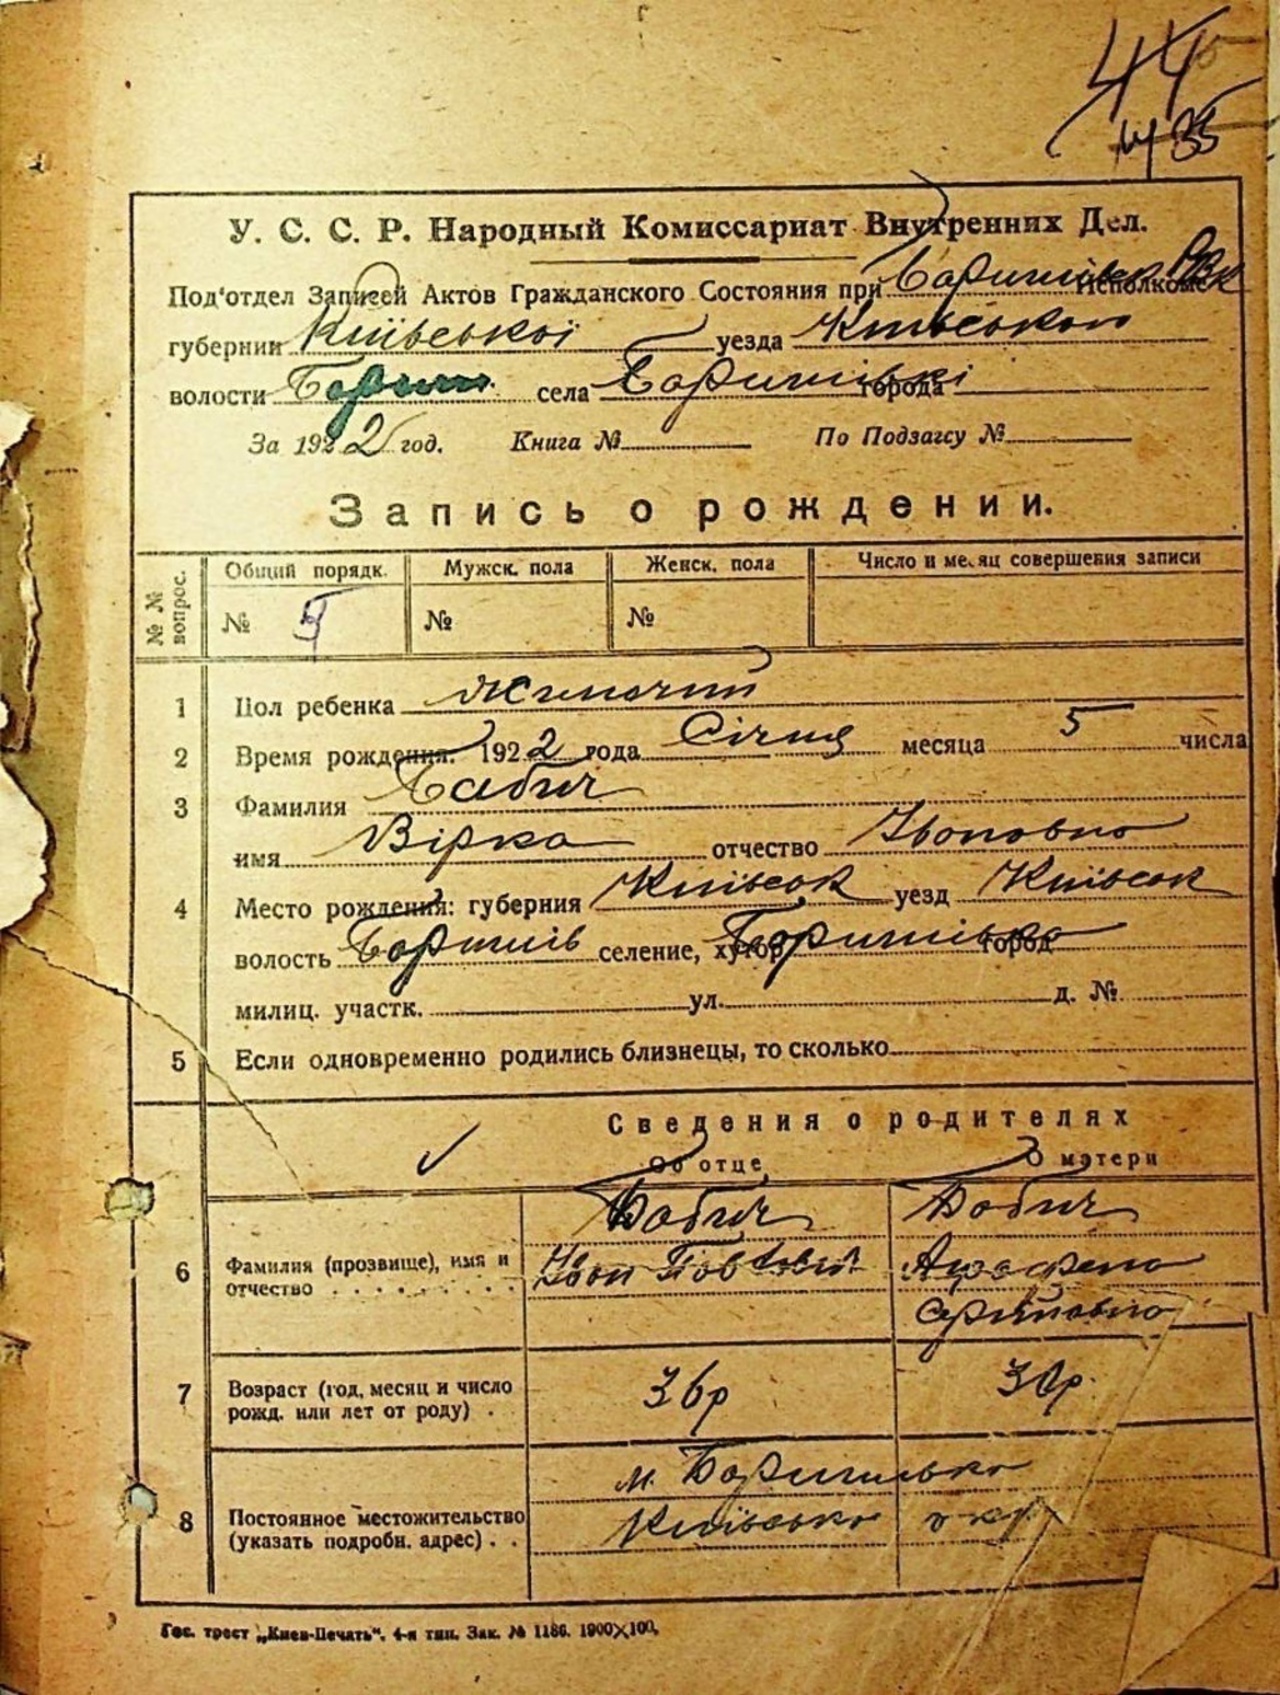 44
35
У. С. С. Р. Народный Комиссариат Внутренних Дел.
Под'отдел Записей Актов Гражданского Состояния при Исполкоме
губернии Київської уезда Київського
волости Бориш. села Баришівкі города
За 1922 год. Книга № По Подзагсу №
Запись о рождении.
№ № вопрос. Общий порядк. Мужск. пола Женск. пола Число и месяц совершения записи
№ 5 № №
1 Пол ребенка Жиночий
2 Время рождения. 1922 года Січня месяца 5 числа
3 Фамилия Бабич
имя Вірка отчество Івановна
4 Место рождения: губерния Київськ уезд Київськ
волость Баришів селение, хутор Баришівка город
милиц. участк. ул. д. №
5 Если одновременно родились близнецы, то сколько
Сведения о родителях
Об отце О матери
Бабич Бабич
6 Фамилия (прозвище), имя и Іван
отчество
7 Возраст (год, месяц и число 36р 30р.
рожд. или лет от роду) .
м. Баришивка
8 Постоянное местожительство Київська окр.
(указать подробн. адрес) . .
Гос. трест „Киев-Печать“. 4-я тип. Зак. № 1186. 1900×100.